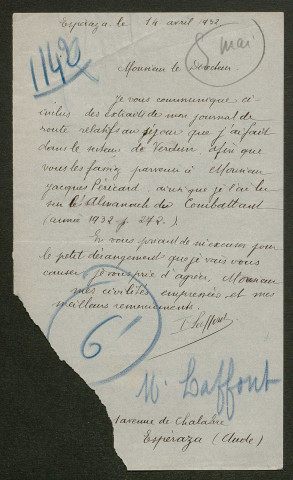 Espéraza, le 14 avril 1932
5 mai
1149
Monsieur le Directeur
Je vous communique ci-
inclus des extraits de mon journal de
route relatifs au séjour que j'ai fait
dans le secteur de Verdun afin que
vous les fassiez parvenir à Monsieur
Jacques Péricard, ainsi que je l'ai lu
sur l'Almanach du Combattant
(année 1932 p. 272.).
En vous priant de m'excuser pour
le petit dérangement que je vais vous
causer, je vous prie d'agréer, Monsieur
mes civilités empressées et mes
meilleurs remerciements.
Laffont
6
M. Laffont
1 avenue de Chalabre
Espéraza (Aude)